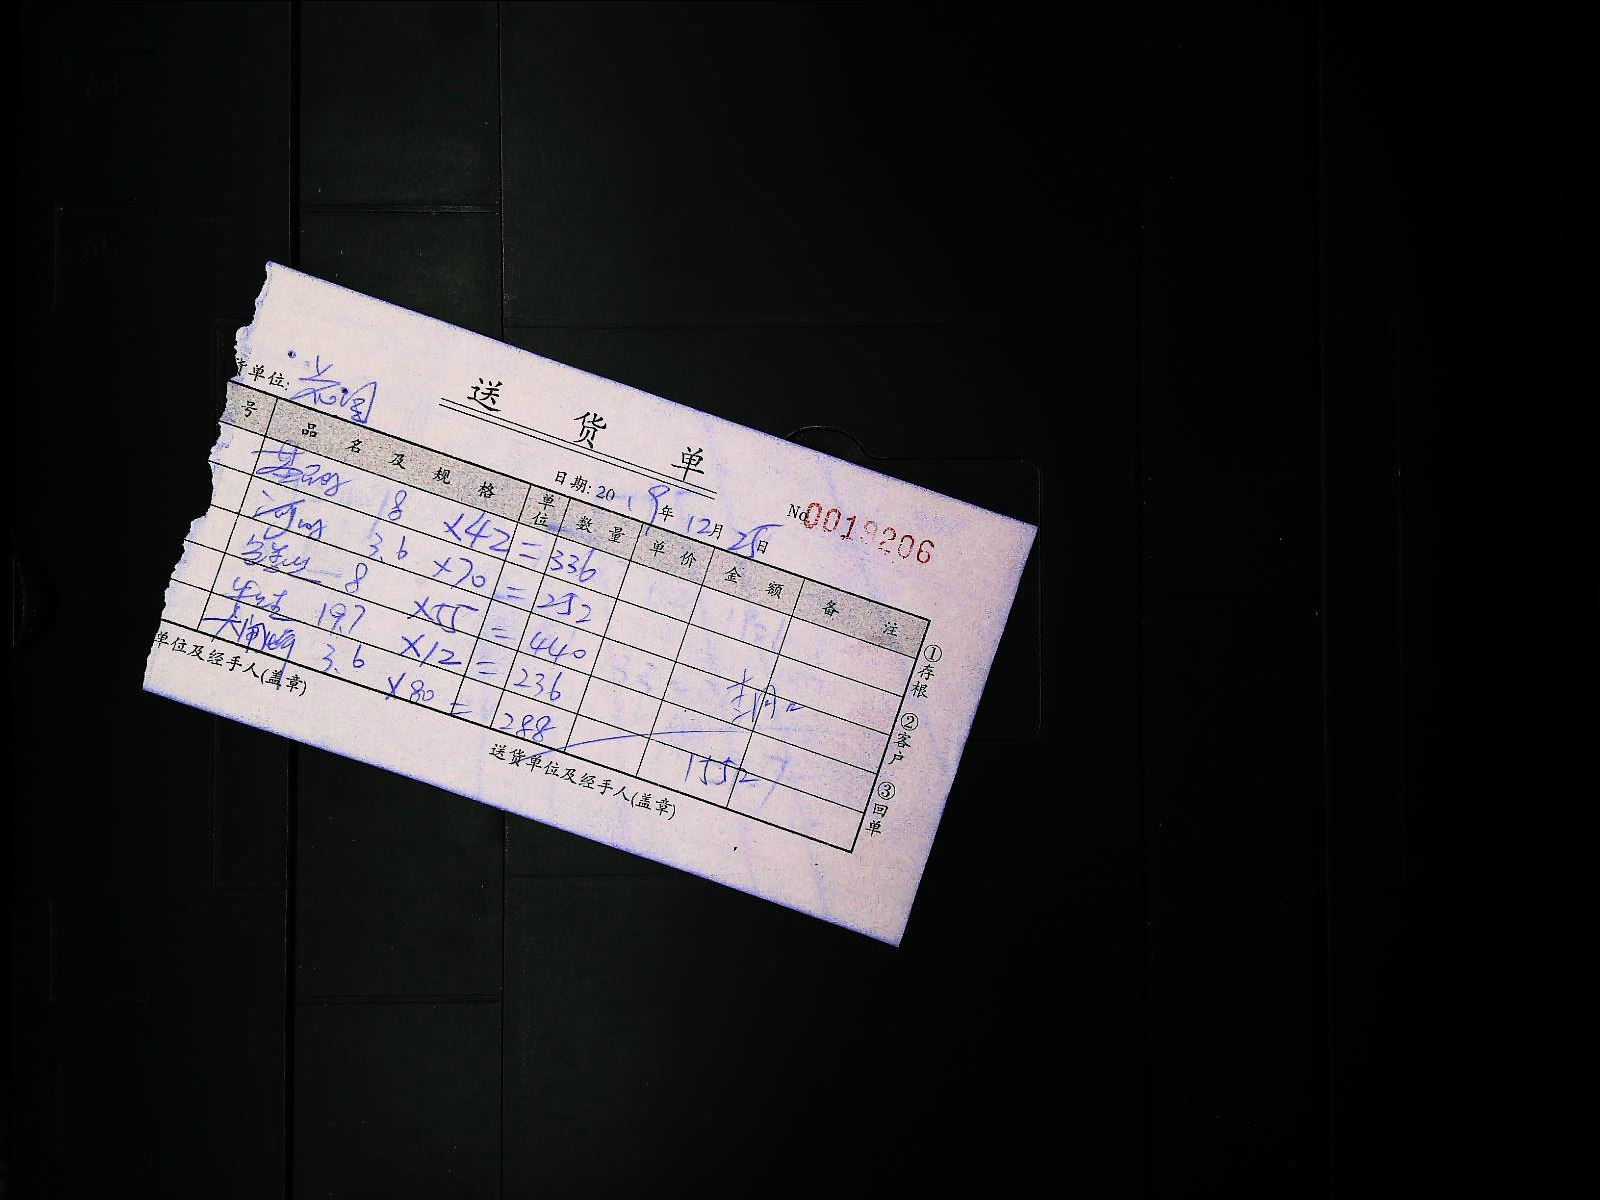 送货单
货单位: 花园
日期: 2019年12月25日
No 0019206
号 品名及规格 单位 数量 单价 金额 备注
8 ×42 = 336
3.6 ×70 = 252
8 ×55 = 440
19.7 ×12 = 236
3.6 ×80 = 288
1552
单位及经手人(盖章)
送货单位及经手人(盖章)
①存根 ②客户 ③回单